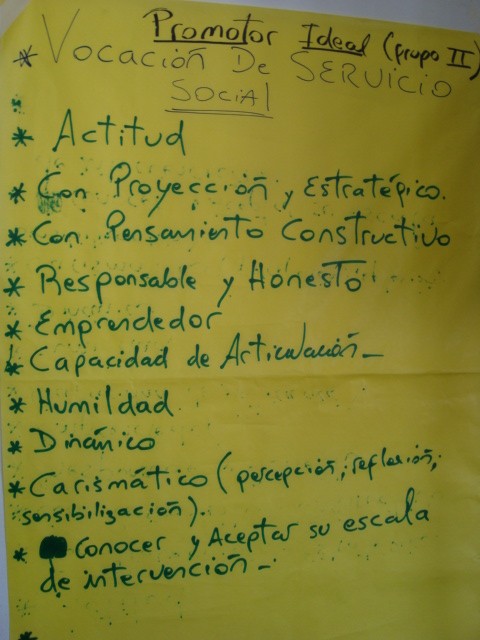 Promotor Ideal (Grupo II)
* Vocación De SERVICIO
SOCIAL
* Actitud
* Con Proyección y Estratégico.
* Con Pensamiento Constructivo
* Responsable y Honesto
* Emprendedor
* Capacidad de Articulación_
* Humildad
* Dinánico
* Carismático (percepción, reflexión,
sensibilización).
* Conocer y Aceptar su escala
de intervención_
*